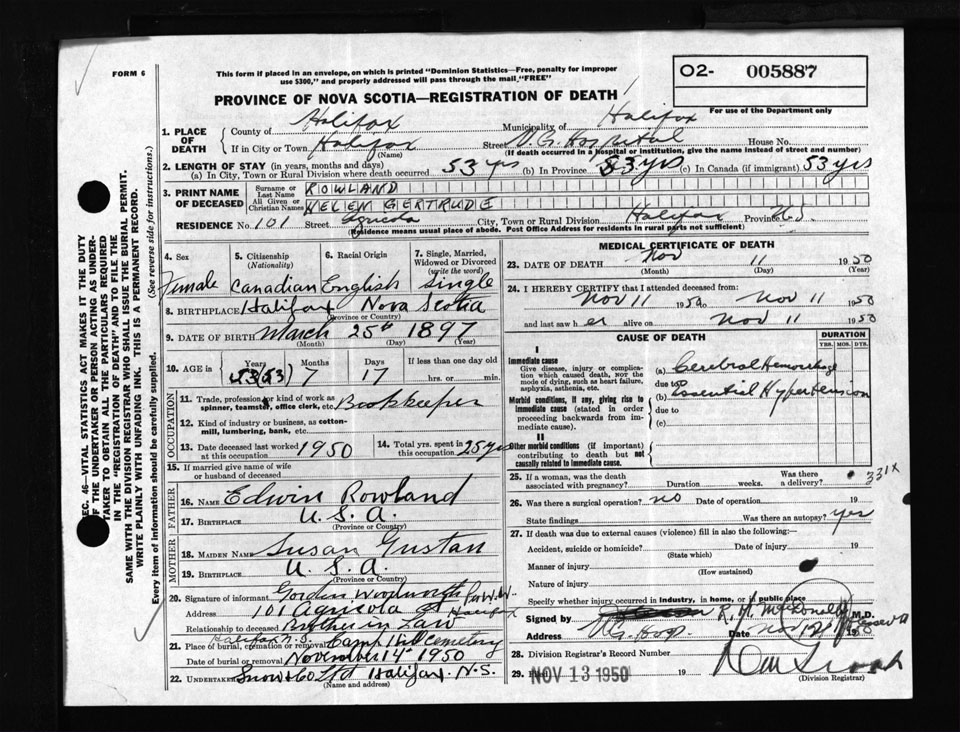 FORM 6
This form if placed in an envelope, on which is printed "Dominion Statistics—Free, penalty for improper
use $300," and properly addressed will pass through the mail, "FREE"
PROVINCE OF NOVA SCOTIA—REGISTRATION OF DEATH
O2- 005887
For use of the Department only
1. PLACE OF DEATH
County of Halifax Municipality of Halifax
If in City or Town Halifax Street V. G. Hospital House No.
(Name) (If death occurred in a hospital or institution, give the name instead of street and number)
2. LENGTH OF STAY (in years, months and days)
(a) In City, Town or Rural Division where death occurred 53 yrs (b) In Province 53 yrs (c) In Canada (if immigrant) 53 yrs
3. PRINT NAME OF DECEASED
Surname or Last Name ROWLAND
All Given or Christian Names HELEN GERTRUDE
RESIDENCE No. 101 Street Agricola City, Town or Rural Division Halifax Province N.S.
(Residence means usual place of abode. Post Office Address for residents in rural parts not sufficient)
4. Sex Female
5. Citizenship (Nationality) Canadian
6. Racial Origin English
7. Single, Married, Widowed or Divorced (write the word) Single
8. BIRTHPLACE Halifax Nova Scotia
(Province or Country)
9. DATE OF BIRTH March 25th 1897
(Month) (Day) (Year)
10. AGE in Years (53) Months 7 Days 17 If less than one day old
hrs. or min.
OCCUPATION
11. Trade, profession or kind of work as
spinner, teamster, office clerk, etc. Bookkeeper
12. Kind of industry or business, as cotton-
mill, lumbering, bank, etc.
13. Date deceased last worked at this occupation 1950
14. Total yrs. spent in this occupation 25 yrs
15. If married give name of wife
or husband of deceased
FATHER
16. Name Edwin Rowland
17. Birthplace U.S.A.
(Province or Country)
MOTHER
18. Maiden Name Susan Gustan
19. Birthplace U.S.A.
(Province or Country)
20. Signature of informant Gordon Woodworth per W.W.
Address 101 Agricola St Halifax
Relationship to deceased Brother in Law
Halifax N.S.
21. Place of burial, cremation or removal Camp Hill Cemetery
Date of burial or removal November 14th 1950
22. Undertaker Snow & Co Ltd Halifax. N.S.
(Name and address)
MEDICAL CERTIFICATE OF DEATH
23. DATE OF DEATH Nov 11 1950
(Month) (Day) (Year)
24. I HEREBY CERTIFY that I attended deceased from:
Nov 11 1950 to Nov 11 1950
and last saw her alive on Nov 11 1950
CAUSE OF DEATH
DURATION
YRS. MOS. DYS.
I
Immediate cause
Give disease, injury or complica-
tion which caused death, nor the
mode of dying, such as heart failure,
asphyxia, asthenia, etc.
(a) Cerebral Hemorrhage
due to
Morbid conditions, if any, giving rise to
immediate cause (stated in order
proceeding backwards from im-
mediate cause).
(b) Essential Hypertension
due to
(c)
II
Other morbid conditions (if important)
contributing to death but not
causally related to immediate cause.
331X
25. If a woman, was the death
associated with pregnancy? Duration weeks. Was there a delivery?
26. Was there a surgical operation? no Date of operation 19
State findings Was there an autopsy? yes
27. If death was due to external causes (violence) fill in also the following:
Accident, suicide or homicide? Date of injury 19
(State which)
Manner of injury
(How sustained)
Nature of injury
Specify whether injury occurred in industry, in home, or in public place
Signed by R. H. McDonald M.D.
Address V.G. Hosp. Date Nov 12th 1950
28. Division Registrar's Record Number
29. Filed NOV 13 1950 19
(Division Registrar)
SEC. 46—VITAL STATISTICS ACT MAKES IT THE DUTY
OF THE UNDERTAKER OR PERSON ACTING AS UNDER-
TAKER TO OBTAIN ALL THE PARTICULARS REQUIRED
IN THE "REGISTRATION OF DEATH" AND TO FILE THE
SAME WITH THE DIVISION REGISTRAR WHO SHALL ISSUE THE BURIAL PERMIT.
WRITE PLAINLY WITH UNFADING INK. THIS IS A PERMANENT RECORD.
Every item of information should be carefully supplied. (See reverse side for instructions.)